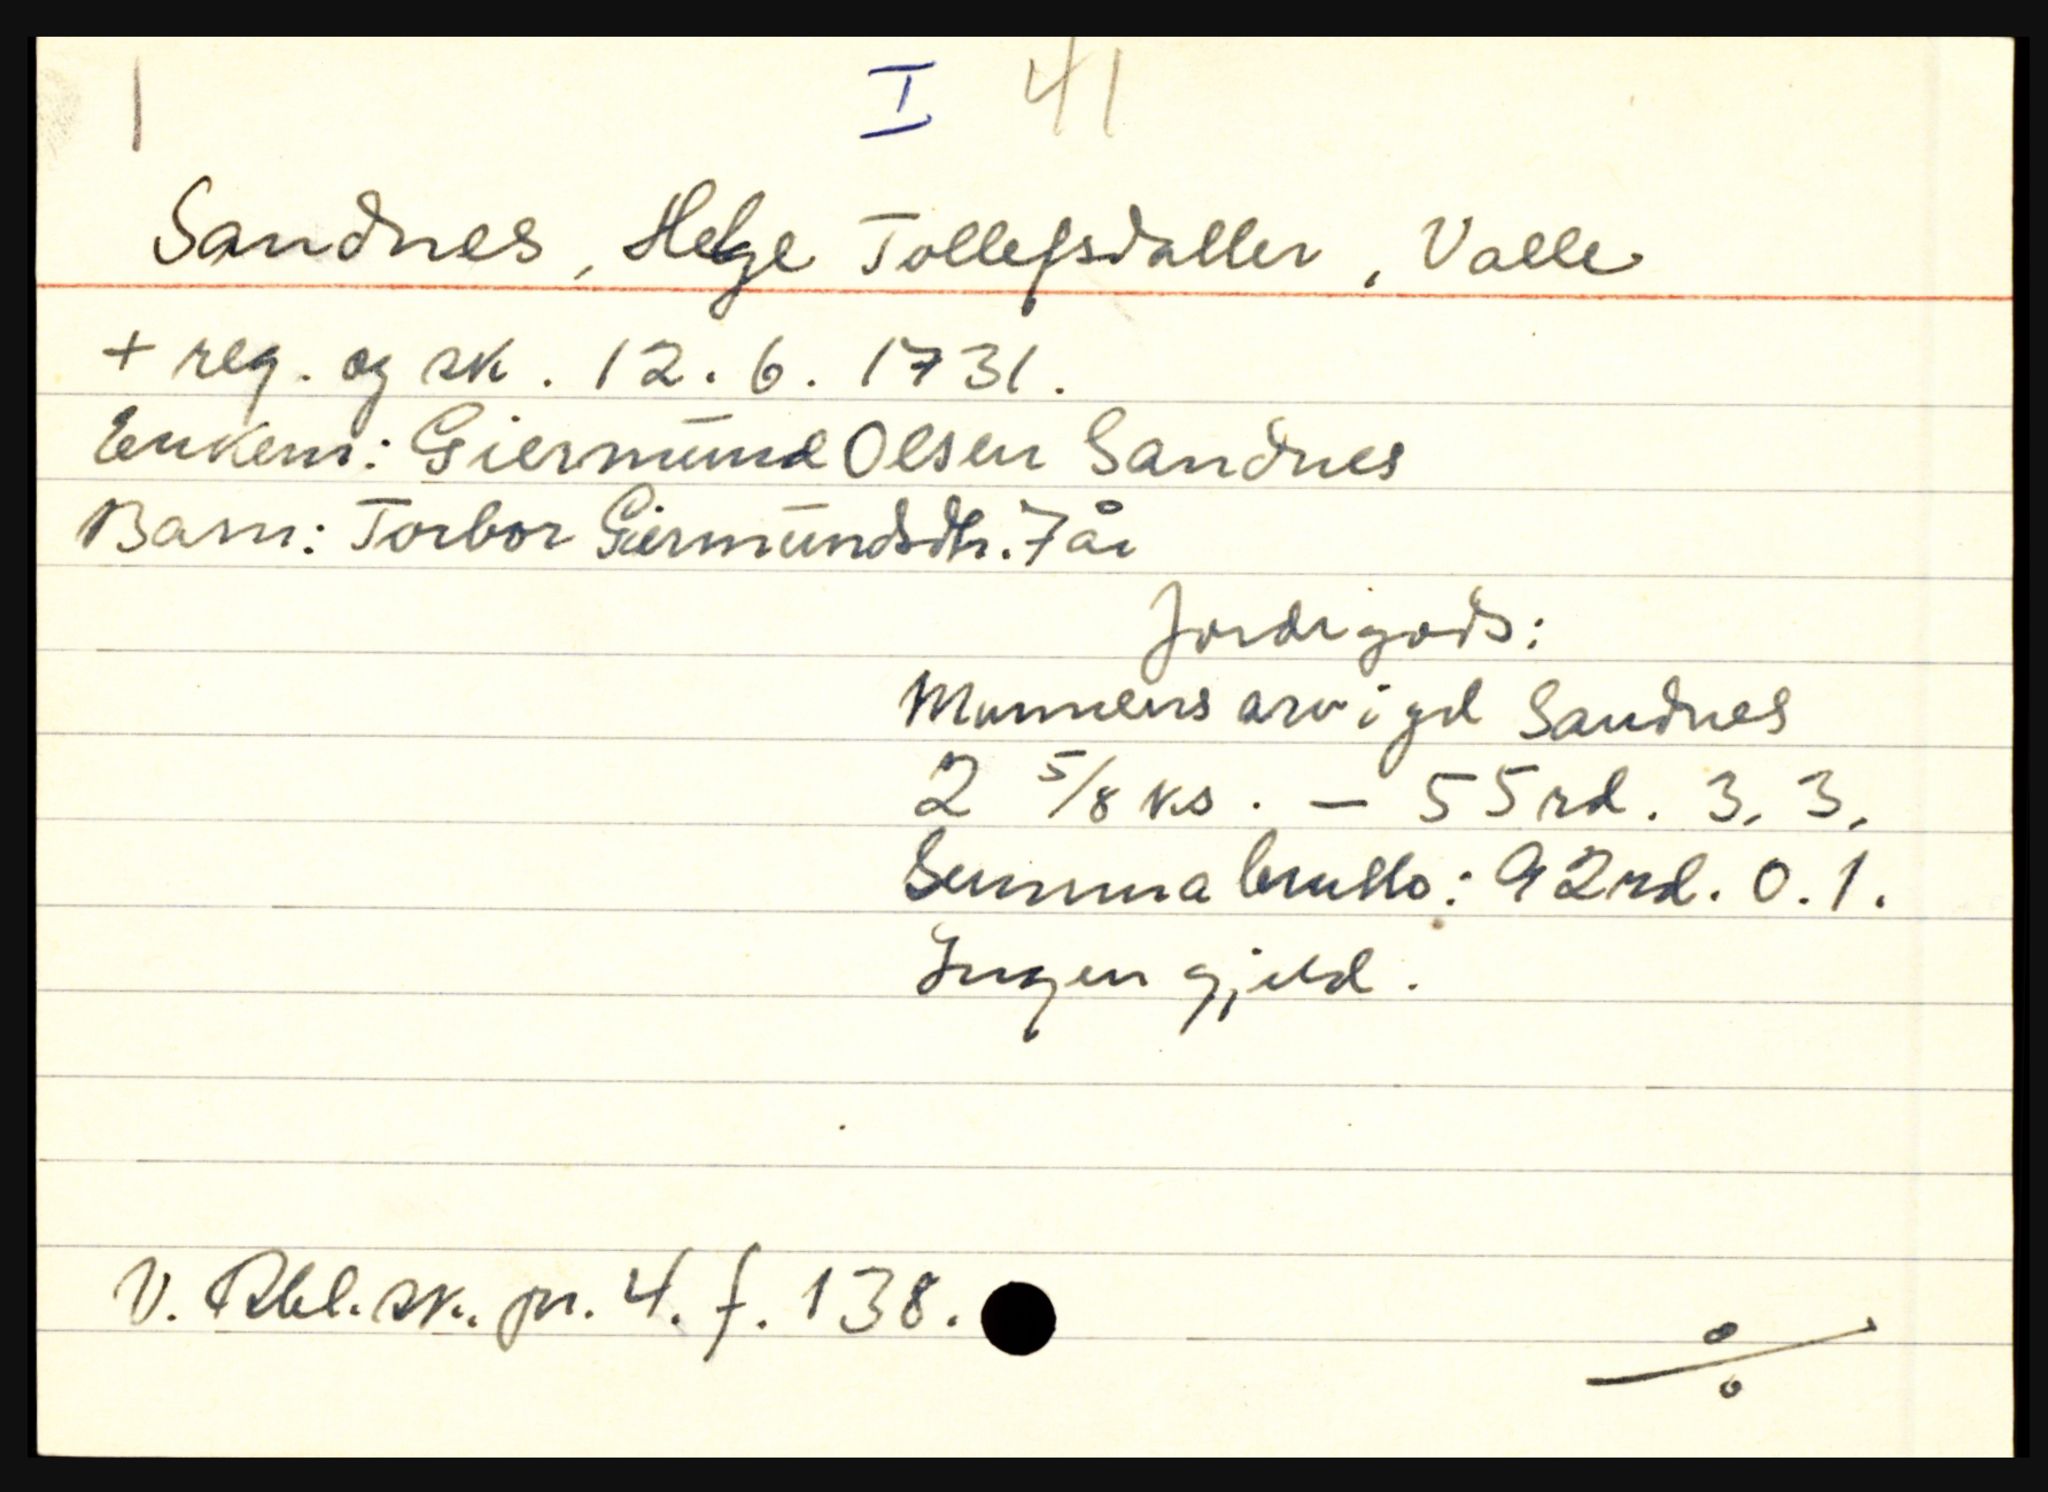 1 I 41
Sandnes, Helge Tollefsdatter, Valle
+ reg. og sk. 12. 6. 1731.
Enkem: Giermund Olsen Sandnes
Barn: Torbor Giermundsdtr. 7 år
Jordegods:
Munnens arv i gd Sandnes
2 5/8 ks. – 55 rd. 3. 3.
Summa brutto: 92 rd. 0. 1.
Ingen gjeld.
V. Rbl. sk. pr. 4. f. 138.